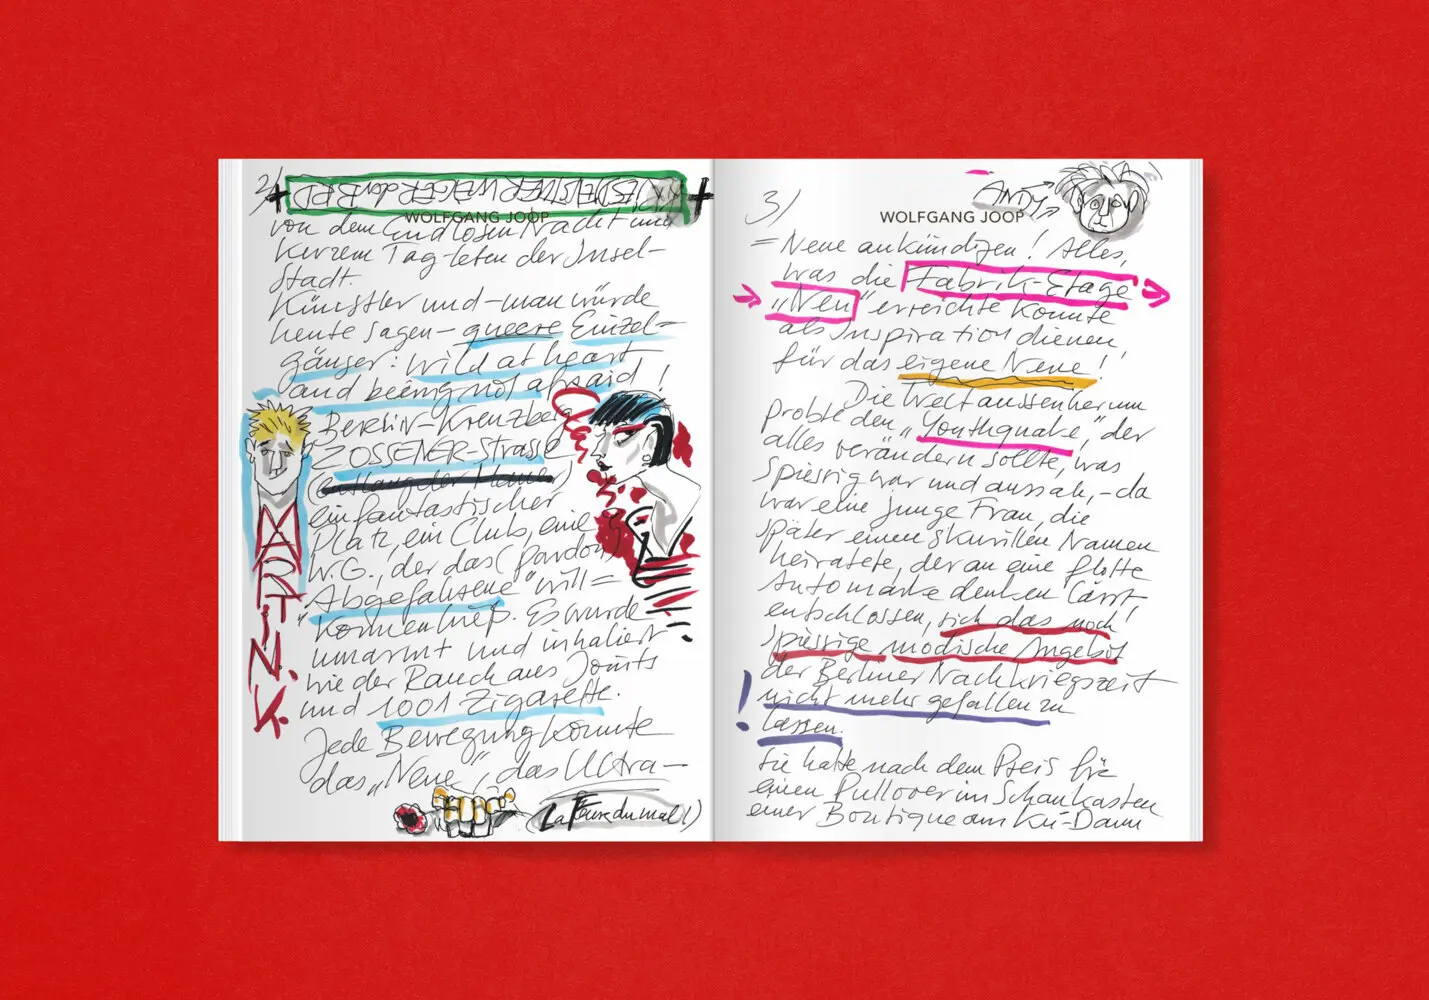 2/
WOLFGANG JOOP
von dem endlosen Nacht und
kurzem Tag-leben der Insel-
Stadt.
Künstler und – man würde
heute sagen – queere Einzel=
gänger: Wild at heart
and beeing not afraid!
Berlin-Kreuzberg
ZOSSENER-Strasse
(entlang der Mauer)
ein fantastischer
Platz, ein Club, eine
W.G., der das (pardon)
"Abgefahrene" will=
kommen hieß. Es wurde
umarmt und inhaliert
wie der Rauch aus Joints
und 1001 Zigarette.
Jede Bewegung konnte
das „Neue", das Ultra–
MARTiN.K.
(La Fleurs du mal!)
3/
ANDY
WOLFGANG JOOP
= Neue ankündigen! Alles,
was die Fabrik-Etage
„Neu" erreichte konnte
als Inspiration dienen
für das eigene Neue!
Die Welt aussenherum
probte den „Youthquake", der
alles verändern sollte, was
spiessig war und aussah, – da
war eine junge Frau, die
später einen skurillen Namen
heiratete, der an eine flotte
Automarke denken lässt
entschlossen, sich das noch
spiessige modische Angebot
der Berliner Nachkriegszeit
! nicht mehr gefallen zu
lassen.
Sie hatte nach dem Preis für
einen Pullover im Schaukasten
einer Boutique am Ku-Damm